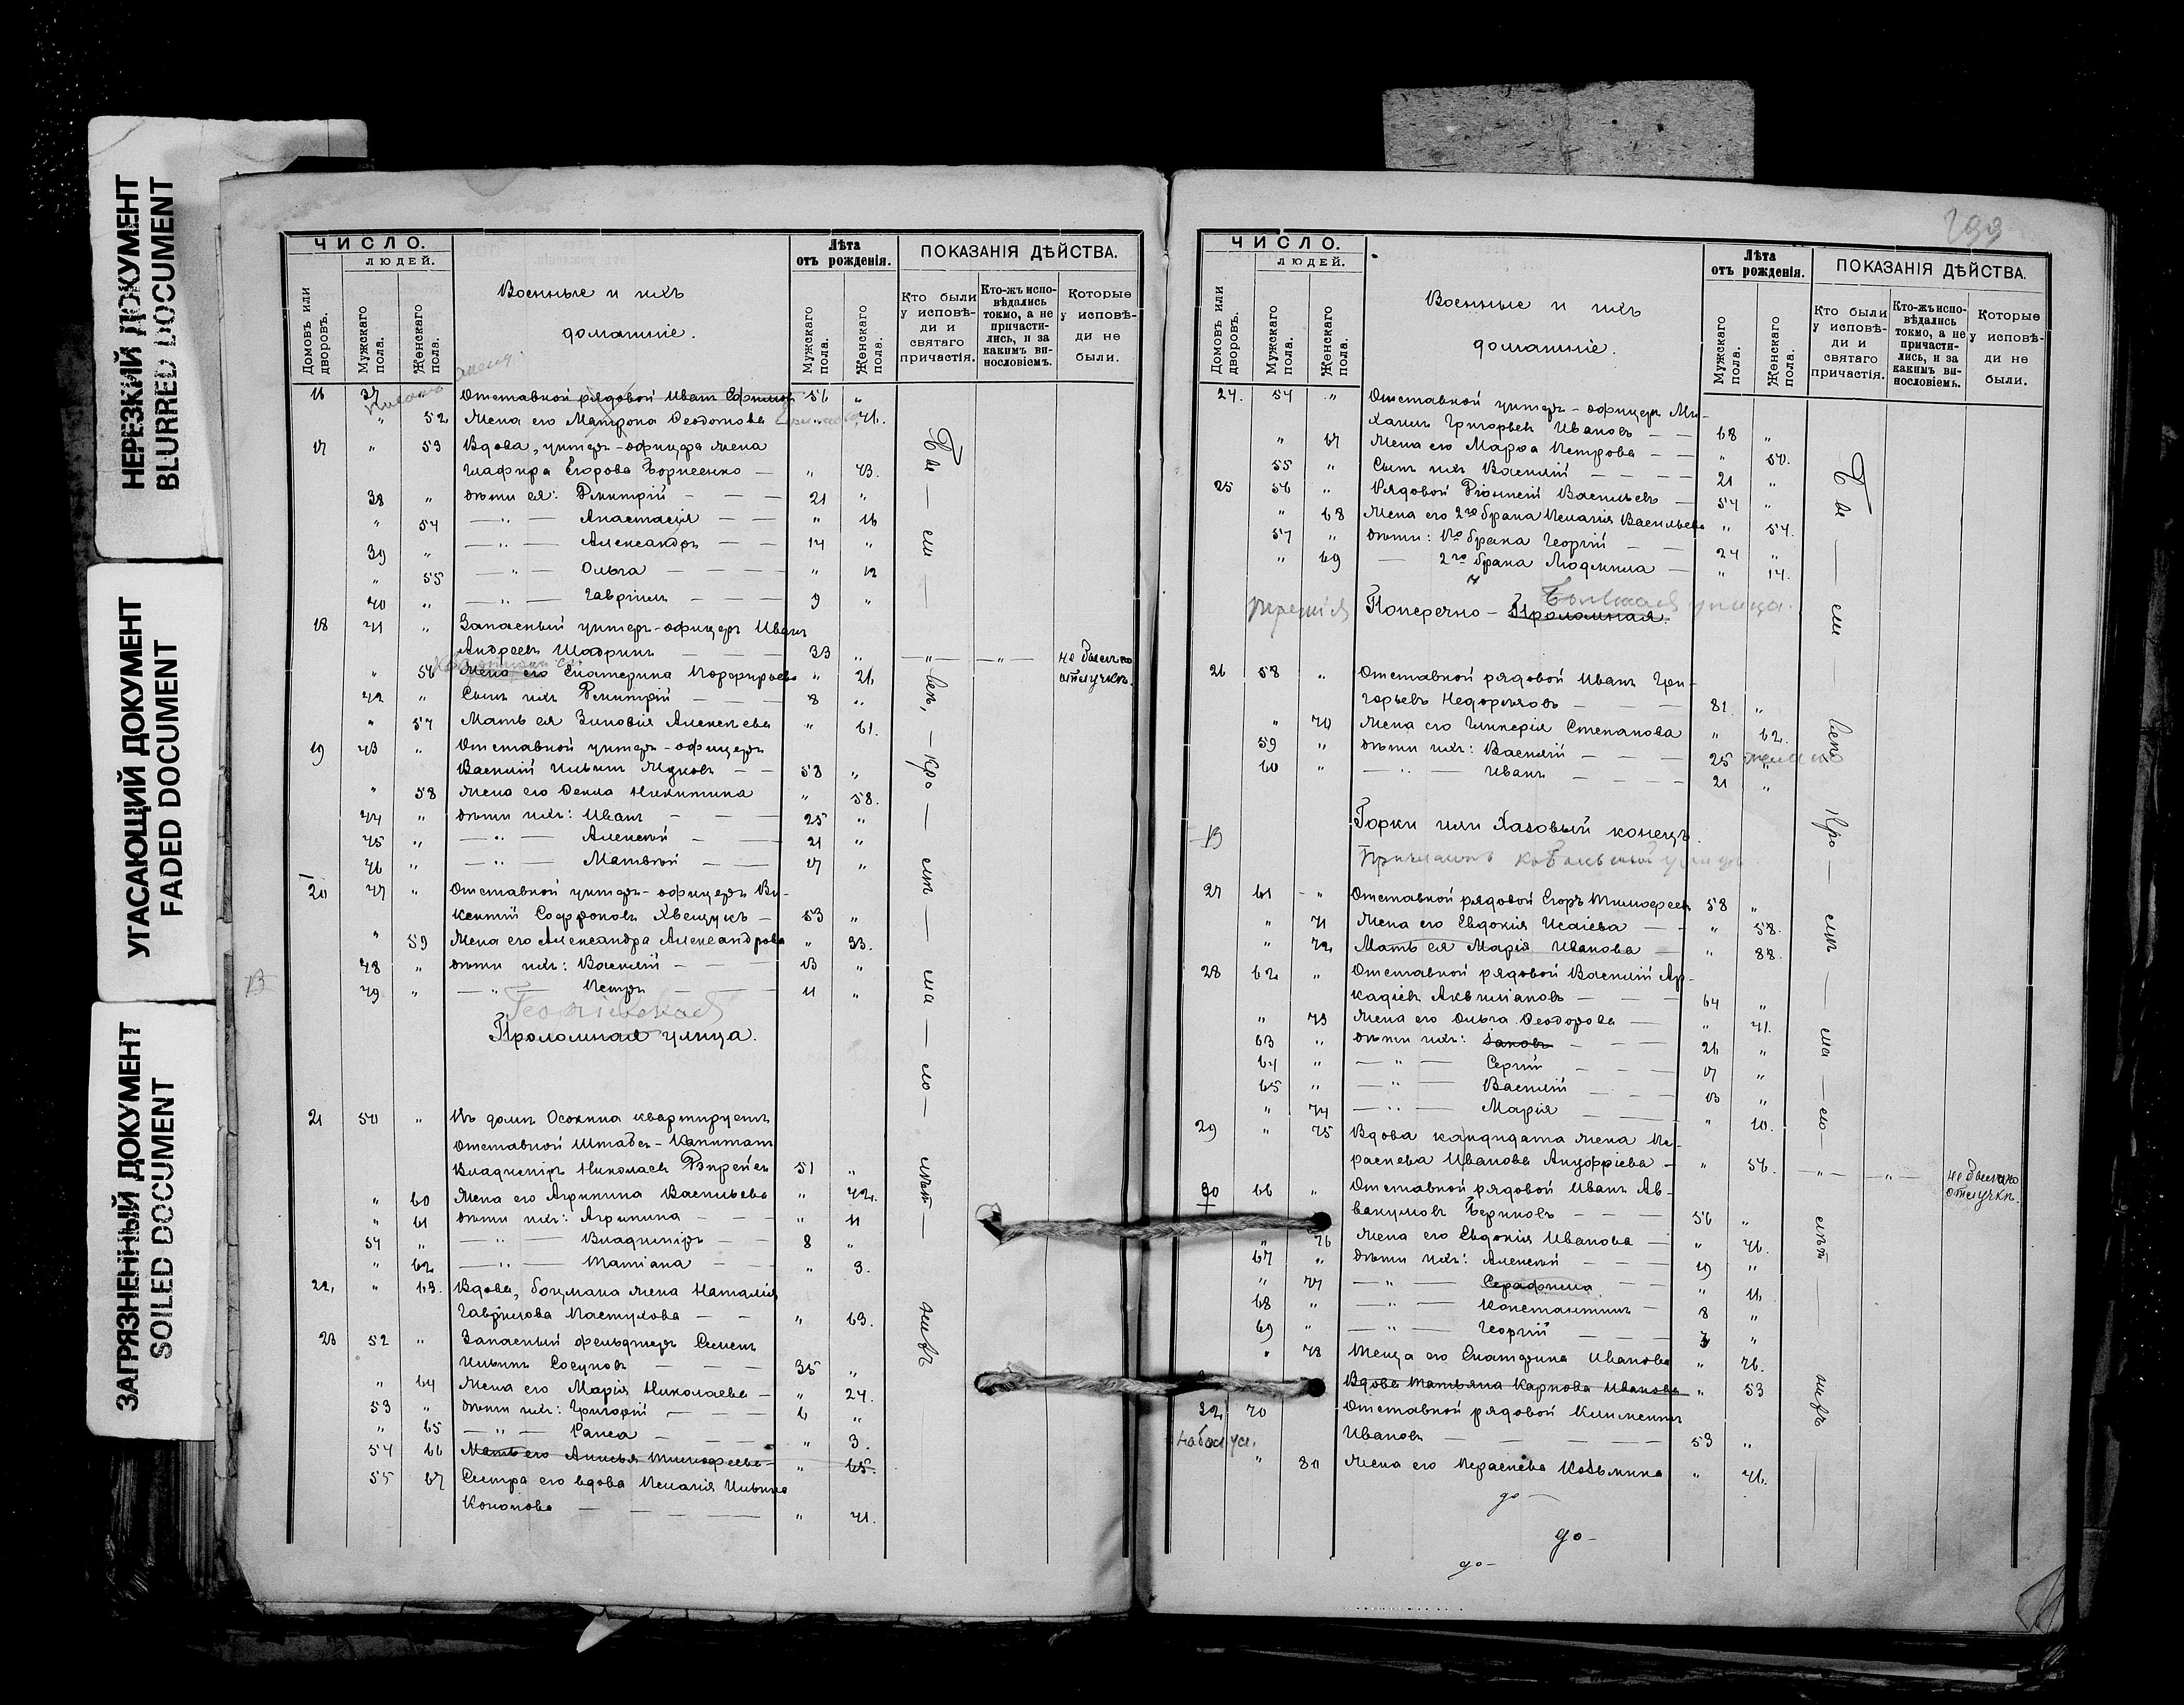 НЕРЕЗКИЙ ДОКУМЕНТ
BLURRED DOCUMENT
УГАСАЮЩИЙ ДОКУМЕНТ
FADED DOCUMENT
ЗАГРЯЗНЕННЫЙ ДОКУМЕНТ
SOILED DOCUMENT
ЧИСЛО.
ЛЮДЕЙ.
Домовъ или дворовъ.
Мужскаго пола.
Женскаго пола.
Военные и ихъ
домашніе.
Лѣта
отъ рожденія.
Мужскаго пола.
Женскаго пола.
ПОКАЗАНІЯ ДѢЙСТВА.
Кто были у исповѣди и святаго причастія.
Кто-жъ исповѣдались токмо, а не причастились, и за какимъ винословіемъ.
Которые у исповѣди не были.
16 37 " Отставной рядовой Иванъ Ефимовъ 56 "
" 52 Жена его Матрона Феодотова " 46.
17 " 53 Вдова, унтеръ-офицера жена
Глафира Егорова Борисенко — " 43.
38 " дѣти ея: Димитрій — — — 21 "
" 54 — " — Анастасія — — " 16
39 " — " — Александръ — — 14 "
" 55 — " — Ольга — — — " 12
40 " — " — Гавріилъ — — — 9 "
18 41 " Запасный унтеръ-офицеръ Иванъ
Андреевъ Шадринъ — — — 33 " — " — — " — не былъ по
" 56 Жена его Екатерина Порфирьева " 26. отлучкѣ.
42 " Сынъ ихъ Димитрій — — — 8 "
" 57 Мать ея Зиновія Алексѣева " 61.
19 43 " Отставной унтеръ-офицеръ
Василій Ильинъ Жуковъ — — 58 "
" 58 Жена его Фекла Никитина " 58.
44 " дѣти ихъ: Иванъ — — — 25 "
45 " — " — Алексѣй — — 21 "
46 " — " — Матвѣй — — 17 "
20 47 " Отставной унтеръ-офицеръ Ви-
кентій Софроновъ Хвещукъ — 53 "
" 59 Жена его Александра Александрова " 33.
48 " дѣти ихъ: Василій — — — 13 "
49 " — " — Петръ — — — 11 "
Георгіевская
Проломная улица.
21 50 " Въ домѣ Осокина квартируетъ
отставной Штабсъ-Капитанъ
Владиміръ Николаевъ 51 "
" 60 Жена его Агрипина Васильева " 42.
" 61 дѣти ихъ: Агрипина — — — " 11
51 " — " — Владиміръ — — 8 "
" 62 — " — Татіана — — " 3.
22. " 63. Вдова, боцмана жена Наталія
Гаврилова Пастухова — — " 63.
23 52 " Запасный фельдшеръ Симеонъ
Ильинъ Сосуновъ — — — 35 "
" 64 Жена его Марія Николаева — " 24.
53 " дѣти ихъ: Григорій — — — 6 "
" 65 — " — Раиса — — — " 3.
54 66 Мать его Анисья Тимофеева — " 65.
55 67 Сестра его вдова Пелагія Ильина
Кононова — — — — " 41.
Бы — ли — всѣ, — кро — лѣ — ма — ло — лѣт — нихъ
ЧИСЛО.
ЛЮДЕЙ.
Домовъ или дворовъ.
Мужскаго пола.
Женскаго пола.
Военные и ихъ
домашніе.
Лѣта
отъ рожденія.
Мужскаго пола.
Женскаго пола.
ПОКАЗАНІЯ ДѢЙСТВА.
Кто были у исповѣди и святаго причастія.
Кто-жъ исповѣдались токмо, а не причастились, и за какимъ винословіемъ.
Которые у исповѣди не были.
24. 54 " Отставной унтеръ-офицеръ Ми-
хаилъ Григорьевъ Ивановъ — — 68 "
" 67 Жена его Марѳа Петрова — — " 50.
55 " Сынъ ихъ Василій — — — 21 "
25 56 " Рядовой Діонисій Васильевъ — 54 "
" 68 Жена его 2го брака Пелагія Васильева " 54.
57 " дѣти: 1го брака Георгій — — 24 "
" 69 — 2го брака Людмила — " 14.
Поперечно-Проломная.
Большая улица.
26 58 " Отставной рядовой Иванъ Гри-
горьевъ Недорѣзовъ — — — 81 "
" 70 Жена его Гликерія Степанова " 62.
59 " дѣти ихъ: Василій — — — 25 "
60 " — " — Иванъ — — — 21 "
Горки или Хазовый конецъ.
27 61 " Отставной рядовой Егоръ Тимофеевъ 58 "
" 71 Жена его Евдокія Исаіева — — " 58.
" 72 Мать ея Марія Иванова — " 88.
28 62 " Отставной рядовой Василій Ар-
кадіевъ Аквиліановъ — — — 64 "
" 73 Жена его Ольга Феодорова — " 41.
63 " дѣти ихъ: Іаковъ — — — 26 "
64 " — " — Сергій — — 17 "
65 " — " — Василій — — 13 "
" 74 — " — Марія — — " 10.
29 " 75 Вдова кандидата жена Па-
раскева Иванова Ануфріева — " 56. — " — — " — не была по
отлучкѣ.
30 66 " Отставной рядовой Иванъ Ав-
вакумовъ Бериковъ — — — 56 "
" 76 Жена его Евдокія Иванова — " 46.
67 " дѣти ихъ: Алексѣй — — 19 "
" 77 — " — Серафима — — " 11.
68 " — " — Константинъ — 8 "
69 " — " — Георгій — — 3 "
" 78 Теща его Екатерина Иванова " 76.
Вдова Татьяна Карпова Иванова " 53
32 70 Отставной рядовой Климентъ
Ивановъ — — — — 53 "
" 80 Жена его Параскева Козьмина " 46.
до —
до —
до —
Бы — ли — всѣ, кро — лѣ — ма — ло — лѣт — нихъ